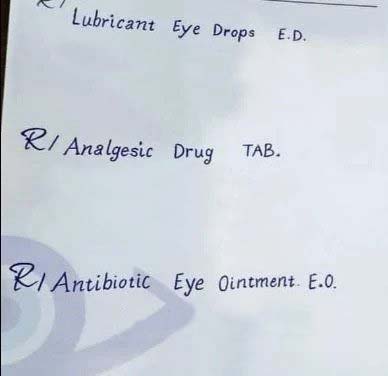 R/
Lubricant Eye Drops E.D.
R/ Analgesic Drug TAB.
R/ Antibiotic Eye Ointment. E.O.